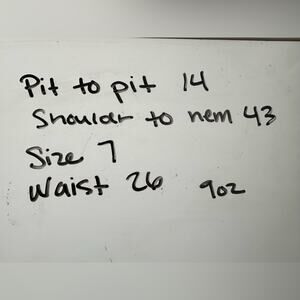 Pit to pit 14
Shoulder to hem 43
Size 7
Waist 26 9oz